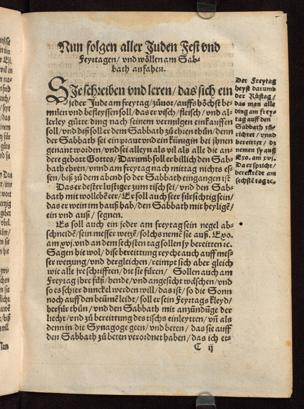 Nun folgen aller Juden Fest vnd
Feyrtagen / vnd wöllen am Sab-
bath anfahen.
Sie schreiben vnd leren / das sich ein
jeder Jude am freytag / zůuor / auffs höchst be
mühen vnd befleyssen soll / das er visch / fleisch / vnd al-
lerley güter ding nach seinem vermügen einkauffen
soll / vnd dz soll er dem Sabbath zů ehren thůn / denn
der Sabbath sei ein praut vnd ein künigin bei jhnen
genant worden / vnd sei alleyn als vil als alle die an-
dere gebott Gottes / Darumb soll er billich den Sab-
bath ehren / vnnd am freytag nach mittag nichts es-
sen / biß zů dem abend so der Sabbath eingangen ist
Das er dester lustiger zum tisch sei / vnd den Sab-
bath mit wolleb ehre / Er soll auch seer fürsichtig sein /
das er wein im hauß hab / den Sabbath mit heylige
ein vnd auß / segnen.
Es soll auch ein jeder am freytag sein negel ab-
schneide / sein messer wetze / solchs nemē sie auß. Exo.
am xvj. vnd an dem sechsten tag sollen sy bereitten ic.
Sagen sie wol / dise bereittung reyche auch auff mes-
ser wetzung / vnd dergleichen / reimpt sich aber gleich
wie alle jre schrifften / die sie füren / Sollen auch am
Freytag jhre füß / hende / vnd angesicht wäschen / vnd
so es schier dunckel werden will / das ist / so die Sonn
noch auff den beümē leidt / soll er sein Freytags kleyd /
herfür thůn / vnd den Sabbath mit anzündūge der
liecht / vnd zů bereittung des tischs einleytten / vñ als
denn in die Synagoge geen / vnd beten / das sie auff
den Sabbath zů beten verordnet haben / das ich etz-
C ij
Der Freytag
heyst darumb
der Rüstag,
das man alle
ding am frey
tag auff den
Sabbath zů-
richten / vnnd
bereittet / dz
nemen sy auß
Exo. am xvj.
Da er spricht /
bereittēdt am
sechste tag ec.